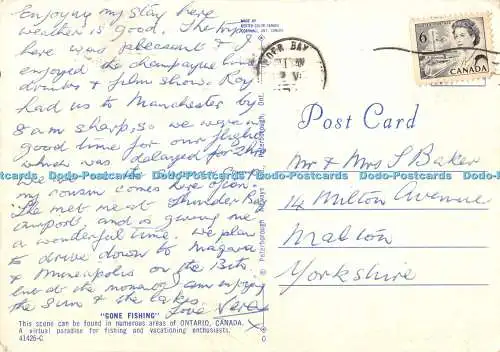 Enjoying my stay here
weather is good. The trip
here was pleasant & I
enjoyed the champagne lunch
drinks & film show. Roy
had us to Manchester by
8 am sharp, so we were in
good time for our flight
which was delayed for 2 hrs
We
my cousin comes here often.
She met me at Thunder Bay
airport, and is giving me
a wonderful time. We plan
to drive down to Niagara
& Minneapolis on the
but at the moment am enjoying
the sun & the lakes.
Love Vera
x
"GONE FISHING"
This scene can be found in numerous areas of ONTARIO, CANADA.
A virtual paradise for fishing and vacationing enthusiasts.
41426-C
MADE BY
CORNWALL, ONT. CANADA
Peterborough, Ont.
© Peterborough
BAY
6
CANADA
Post Card
Mr & Mrs S Baker
14 Milton Avenue
Malton
Yorkshire
Dodo-Postcards Dodo-Postcards Dodo-Postcards Dodo-Postcards